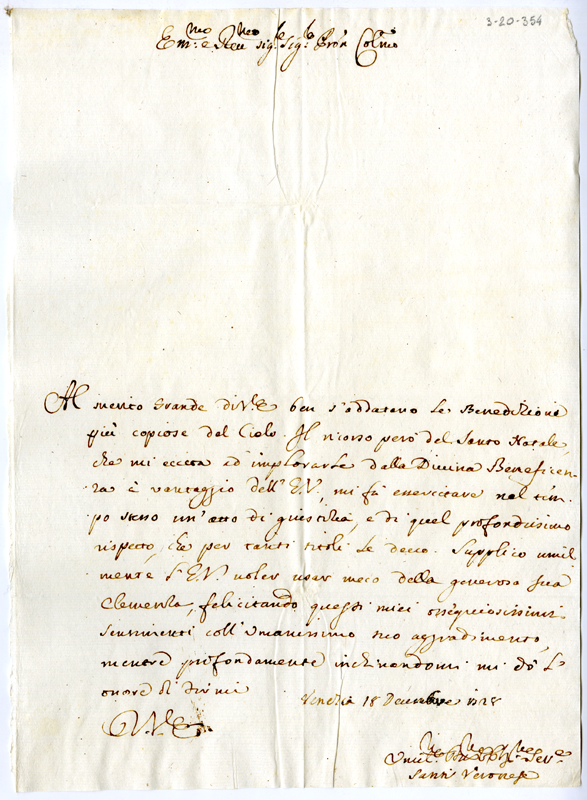 3-20-354
Em.mo e Rev.mo Sig.re Sig.re Pron Col.mo
Al merito grande di V.E. ben s'addatano le Benedizioni
più copiose del Cielo. Il ricorso però del Santo Natale,
che mi eccita ad implorarle dalla Divina Beneficen-
za à vantaggio dell'E.V., mi fà essercitare nel tem-
po steso un'atto di giustitia, e di quel profondissimo
rispetto, che per tanti titoli le devo. Supplico umil
mente l'E.V. voler usar meco della generosa sua
Clemenza, felicitando questi miei ossequiosissimi
sentimenti coll'Umanissimo suo aggradimento,
mentre profondamente inchinandomi mi dò l'
onore di dirmi
Venezia 18 Decembre 1728
D.V.E.
Umil.mo Ser.e
Sant Veronese